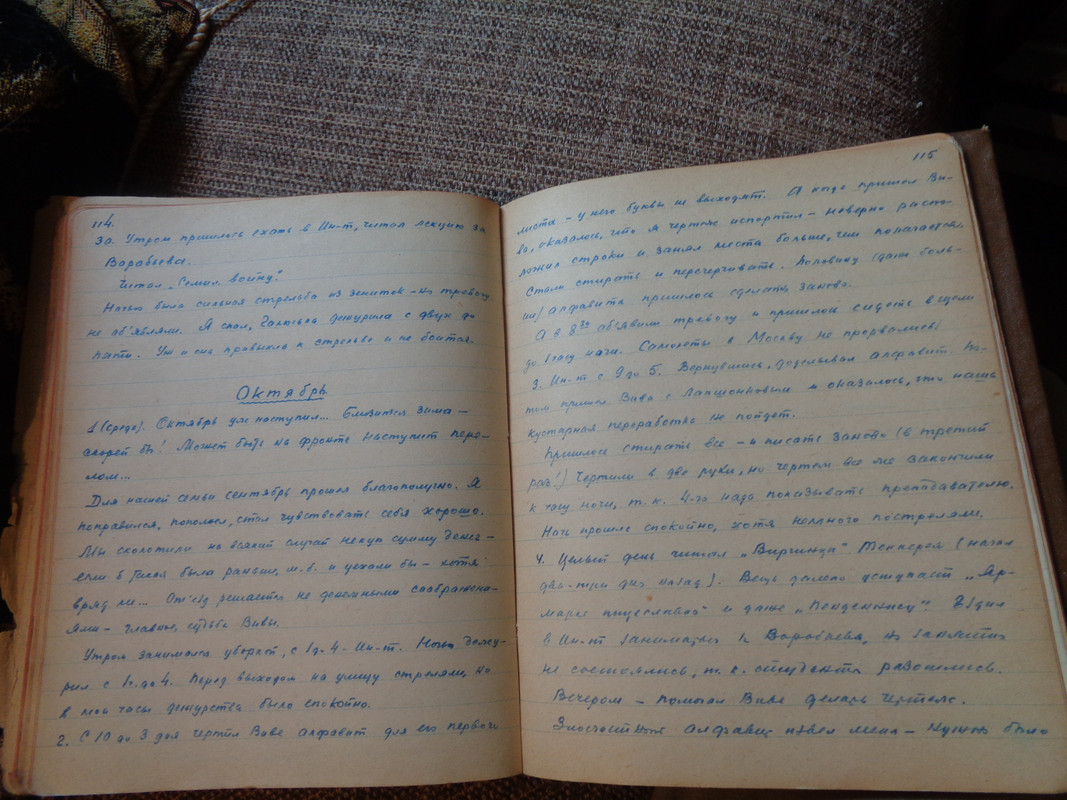 114.
30. Утром пришлось ехать в Ин-т, читал лекцию за
Воробьева.
Читал „Семил. войну".
Ночью была сильная стрельба из зениток – но тревогу
не об'являли. Я спал, Галюська дежурила с двух до
пяти. Уж и она привыкла к стрельбе и не боится.
Октябрь
1 (среда). Октябрь уж наступил... Близится зима –
скорей бы! Может быть на фронте наступит пере-
лом...
Для нашей семьи сентябрь прошел благополучно. Я
поправился, пополнел, стал чувствовать себя хорошо.
Мы сколотили на всякий случай некую сумму денег –
если б такая была раньше, м.б. и уехали бы – хотя
вряд ли... От'езд решается не денежными соображени-
ями – главное, судьба Вивы.
Утром занимался уборкой, с 1 до 4 – Ин-т. Ночью дежу-
рил с 1 ч. до 4. Перед выходом на улицу стреляли, но
в мои часы дежурства было спокойно.
2. С 10 до 3 дня чертил Виве алфавит для его первого
115
листа – у него буквы не выходят. А когда пришел Ви-
ва, оказалось, что я чертеж испортил – неверно распо-
ложил строки и занял места больше, чем полагается.
Стали стирать и перечерчивать. Половину (даже боль-
ше) алфавита пришлось сделать заново.
А в 8³⁰ об'явили тревогу и пришлось сидеть в щели
до 1 часу ночи. Самолеты в Москву не прорвались.
3. Ин-т с 9 до 5. Вернувшись, доделывал алфавит. По-
том пришел Вива с Лапшонковым и оказалось, что наша
кустарная переработка не пойдет.
Пришлось стирать все – и писать заново (в третий
раз!) Чертили в две руки, но чертеж все же закончили
к часу ночи, т. к. 4-го надо показывать преподавателю.
Ночь прошла спокойно, хотя немного постреляли.
4. Целый день читал „Вирчинца" Теккерея (начал
два-три дня назад). Вещь далеко уступает „Яр-
марке тщеславия" и даже „Пенденнису". Ездил
в Ин-т заниматься за Воробьева, но занятия
не состоялись, т. к. студенты разошлись.
Вечером – помогал Виве делать чертеж.
Злосчастный алфавит извел меня – нужно было